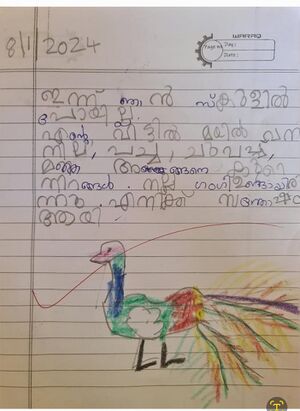 WARAQ
Page no:
Date:
Date:
8/1/2024
ഇന്ന് ഞാൻ സ്കൂളിൽ
പോയില്ല.
എന്റെ വീട്ടിൽ മയിൽ വന്നു
നീല, പച്ച, ചുവപ്പ്,
മഞ്ഞ അങ്ങനെ കുറെ
നിറങ്ങൾ. നല്ല ഭംഗി ഉണ്ടായി
ന്നു. എനിക്ക് സന്തോഷം
ആയി.